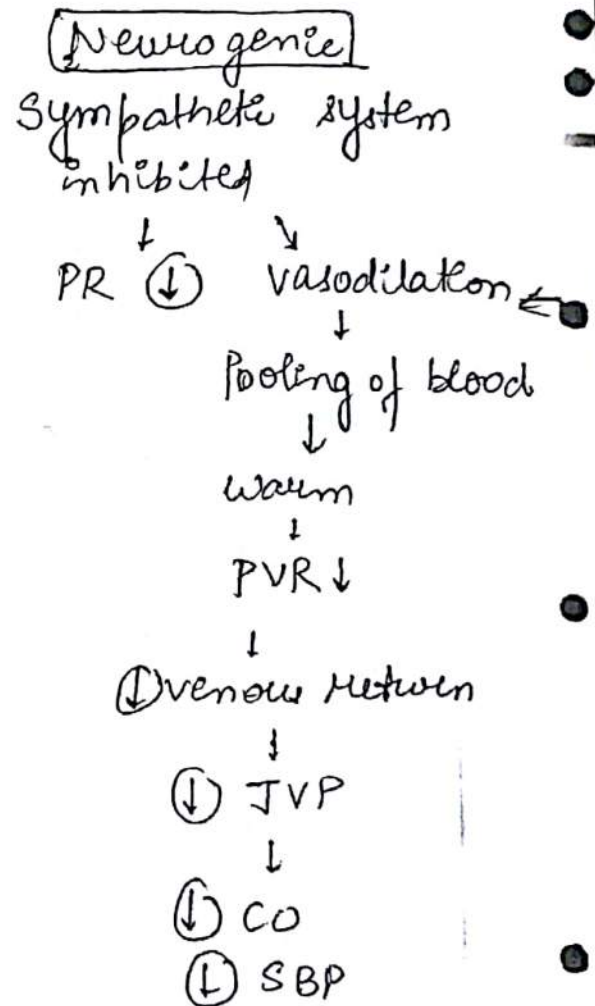 Neurogenic
Sympathetic system
inhibited
↓ ↘
PR ↓ vasodilation ←
↓
Pooling of blood
↓
warm
↓
PVR ↓
↓
↓ venous return
↓
↓ JVP
↓
↓ CO
↓ SBP